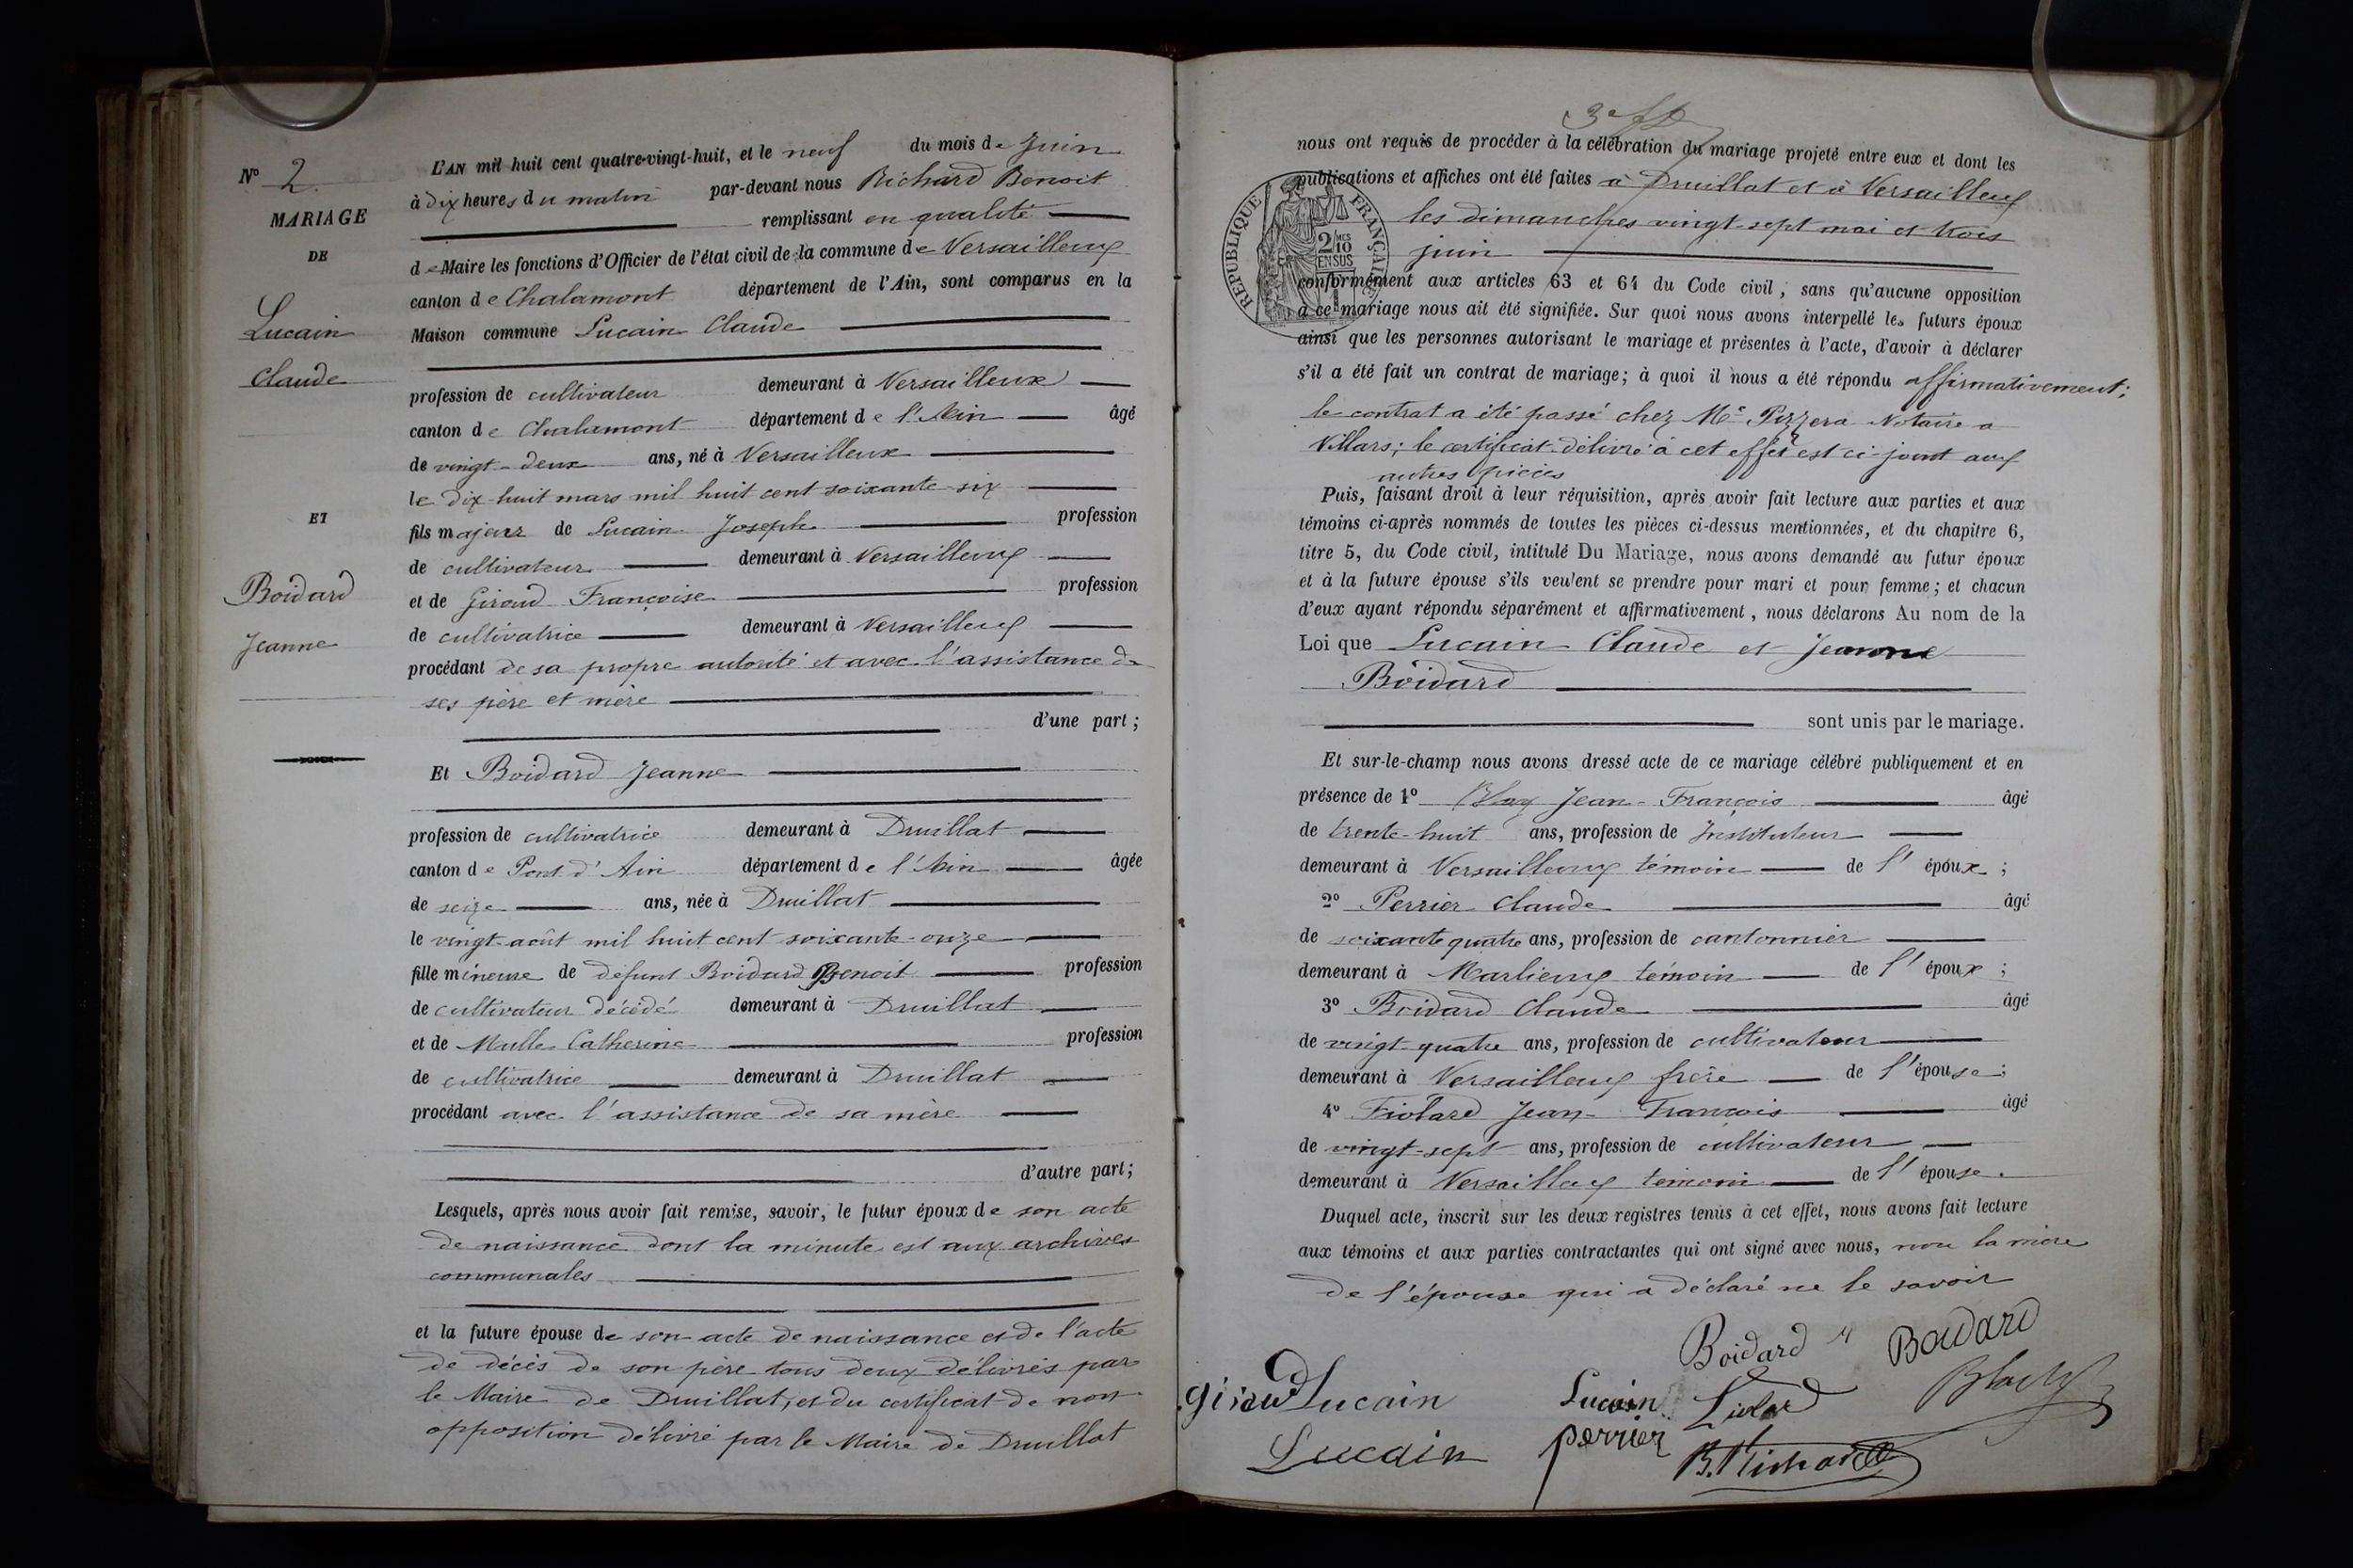 N° 2
MARIAGE
DE
Lucain
Claude
ET
Boidard
Jeanne
L'AN mil huit cent quatre-vingt-huit, et le neuf du mois de Juin
à dix heures du matin par-devant nous Richard Benoit
remplissant en qualité
de Maire les fonctions d'Officier de l'état civil de la commune de Versailleux
canton de Chalamont département de l'Ain, sont comparus en la
Maison commune Lucain Claude
profession de cultivateur demeurant à Versailleux
canton de Chalamont département de l'Ain âgé
de vingt-deux ans, né à Versailleux
le dix-huit mars mil huit cent soixante-six
fils majeur de Lucain Joseph profession
de cultivateur demeurant à Versailleux
et de Giroud Françoise profession
de cultivatrice demeurant à Versailleux
procédant de sa propre autorité et avec l'assistance de
ses père et mère
d'une part ;
Et Boidard Jeanne
profession de cultivatrice demeurant à Druillat
canton de Pont d'Ain département de l'Ain âgée
de seize ans, née à Druillat
le vingt août mil huit cent soixante-onze
fille mineure de défunt Boidard Benoit profession
de cultivateur décédé demeurant à Druillat
et de Mulle Catherine profession
de cultivatrice demeurant à Druillat
procédant avec l'assistance de sa mère
d'autre part ;
Lesquels, après nous avoir fait remise, savoir, le futur époux de son acte
de naissance dont la minute est aux archives
communales
et la future épouse de son acte de naissance et de l'acte
de décès de son père tous deux délivrés par
le Maire de Druillat, et du certificat de non
opposition délivré par le Maire de Druillat
nous ont requis de procéder à la célébration du mariage projeté entre eux et dont les
publications et affiches ont été faites à Druillat et à Versailleux
les dimanches vingt-sept mai et trois
juin
RÉPUBLIQUE FRANÇAISE
2/10 MES
EN SUS
conformément aux articles 63 et 64 du Code civil, sans qu'aucune opposition
à ce mariage nous ait été signifiée. Sur quoi nous avons interpellé les futurs époux
ainsi que les personnes autorisant le mariage et présentes à l'acte, d'avoir à déclarer
s'il a été fait un contrat de mariage ; à quoi il nous a été répondu affirmativement ;
le contrat a été passé chez Me Pizzera Notaire a
Villars ; le certificat délivré à cet effet est ci-joint aux
autres pièces
Puis, faisant droit à leur réquisition, après avoir fait lecture aux parties et aux
témoins ci-après nommés de toutes les pièces ci-dessus mentionnées, et du chapitre 6,
titre 5, du Code civil, intitulé Du Mariage, nous avons demandé au futur époux
et à la future épouse s'ils veulent se prendre pour mari et pour femme ; et chacun
d'eux ayant répondu séparément et affirmativement, nous déclarons Au nom de la
Loi que Lucain Claude et Jeanne
Boidard
sont unis par le mariage.
Et sur-le-champ nous avons dressé acte de ce mariage célébré publiquement et en
présence de 1° Jean-François âgé
de trente-huit ans, profession de Instituteur
demeurant à Versailleux témoin de l'époux ;
2° Perrier Claude âgé
de soixante quatre ans, profession de cantonnier
demeurant à Marlieux témoin de l'époux ;
3° Boidard Claude âgé
de vingt-quatre ans, profession de cultivateur
demeurant à Versailleux frère de l'épouse ;
4° Jean-François âgé
de vingt-sept ans, profession de cultivateur
demeurant à Versailleux témoin de l'épouse.
Duquel acte, inscrit sur les deux registres tenus à cet effet, nous avons fait lecture
aux témoins et aux parties contractantes qui ont signé avec nous, non la mère
de l'épouse qui a déclaré ne le savoir
Boidard Boidard
giroud Lucain Lucain
Lucain perrier B. Richard